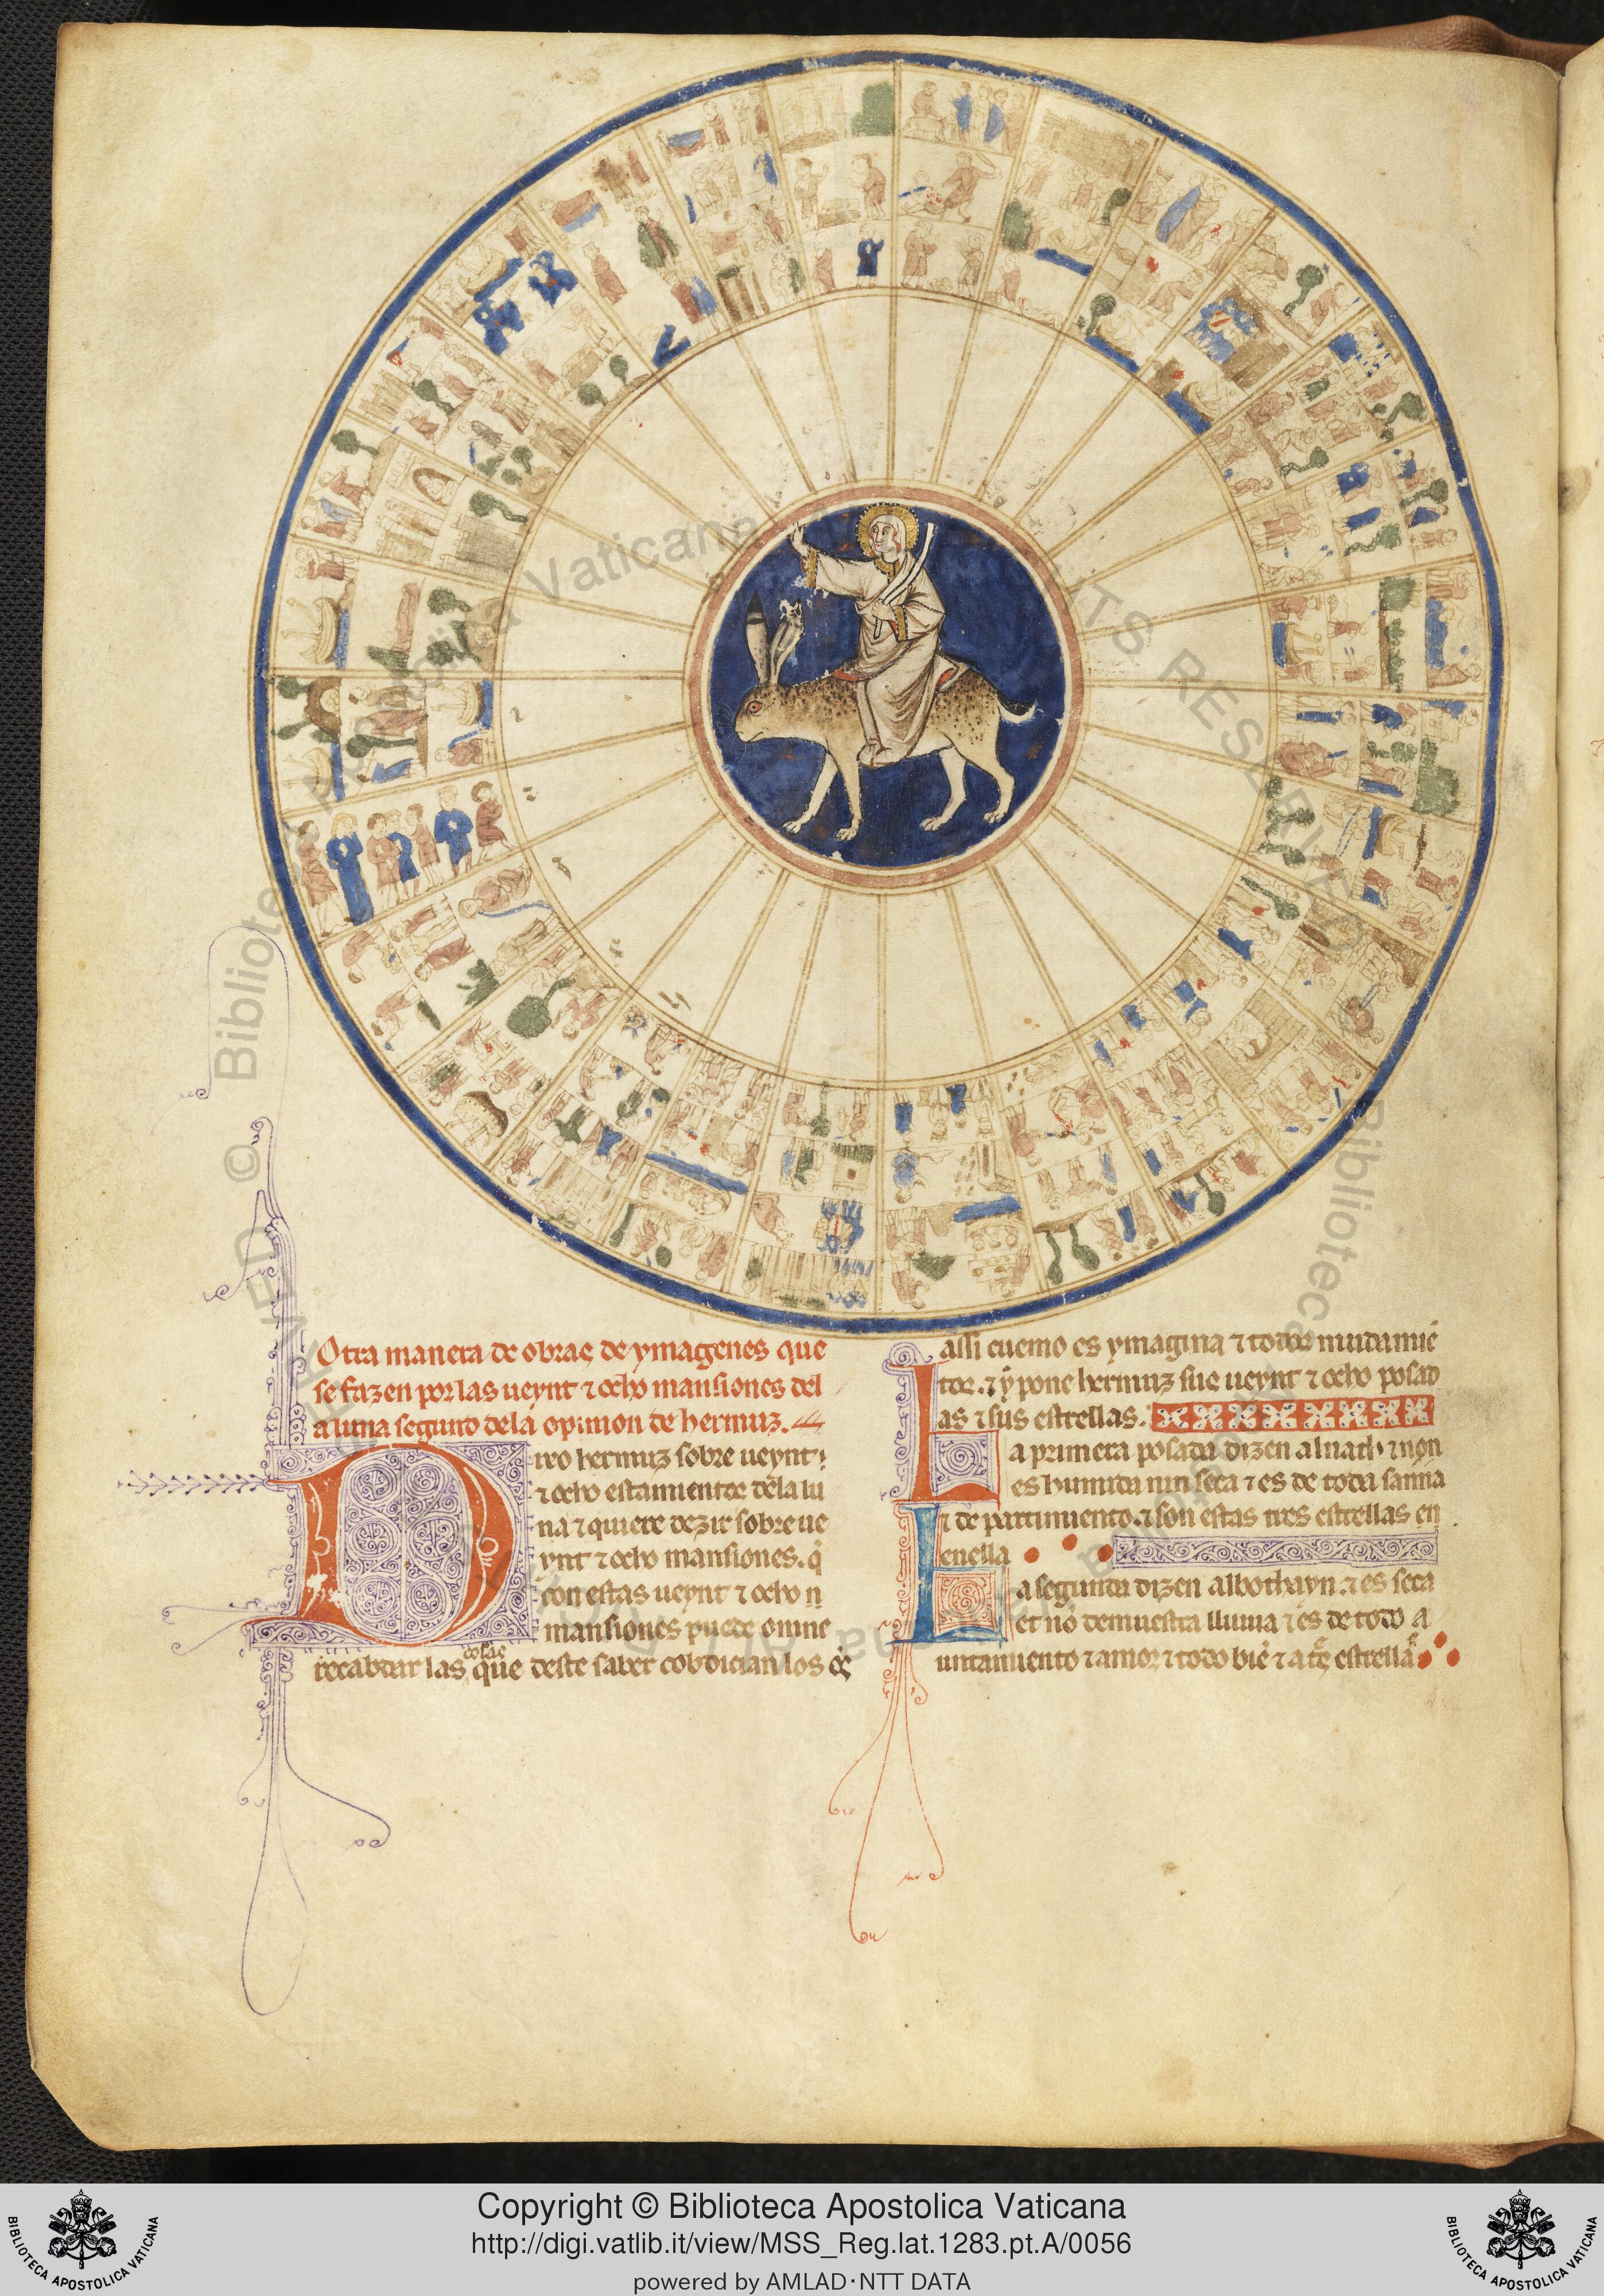 Otra manera de obras de ymagenes que
se fazen por las ueynt ⁊ ocho mansiones del
a luna segund dela opinion de hermuz.
Dixo hermuz sobre ueynt
⁊ ocho estamientos dela lu
na ⁊ quiere dezir sobre ue
ynt ⁊ ocho mansiones. q̇
con estas ueynt ⁊ ocho
mansiones puede omne
recabdar las cosas que deste saber cobdician los
assi cuemo es ymagina ⁊ todos mudamiē
tos. ⁊ ẏ pone hermuz sus ueynt ⁊ ocho posad
as ⁊ sus estrellas.
La primera posada dizen alnath ⁊ non
es humida nin seca ⁊ es de toda sanna
⁊ de partimiento. ⁊ son estas tres estrellas en
enella
La segunda dizen albothayn. ⁊ es seca
et nō demuestra lluuia ⁊ es de todo a
untamiento ⁊ amor ⁊ todo biē ⁊ a estrella
© Biblioteca Apostolica Vaticana
ALL RIGHTS RESERVED
Copyright © Biblioteca Apostolica Vaticana
http://digi.vatlib.it/view/MSS_Reg.lat.1283.pt.A/0056
powered by AMLAD·NTT DATA
BIBLIOTECA APOSTOLICA VATICANA
BIBLIOTECA APOSTOLICA VATICANA